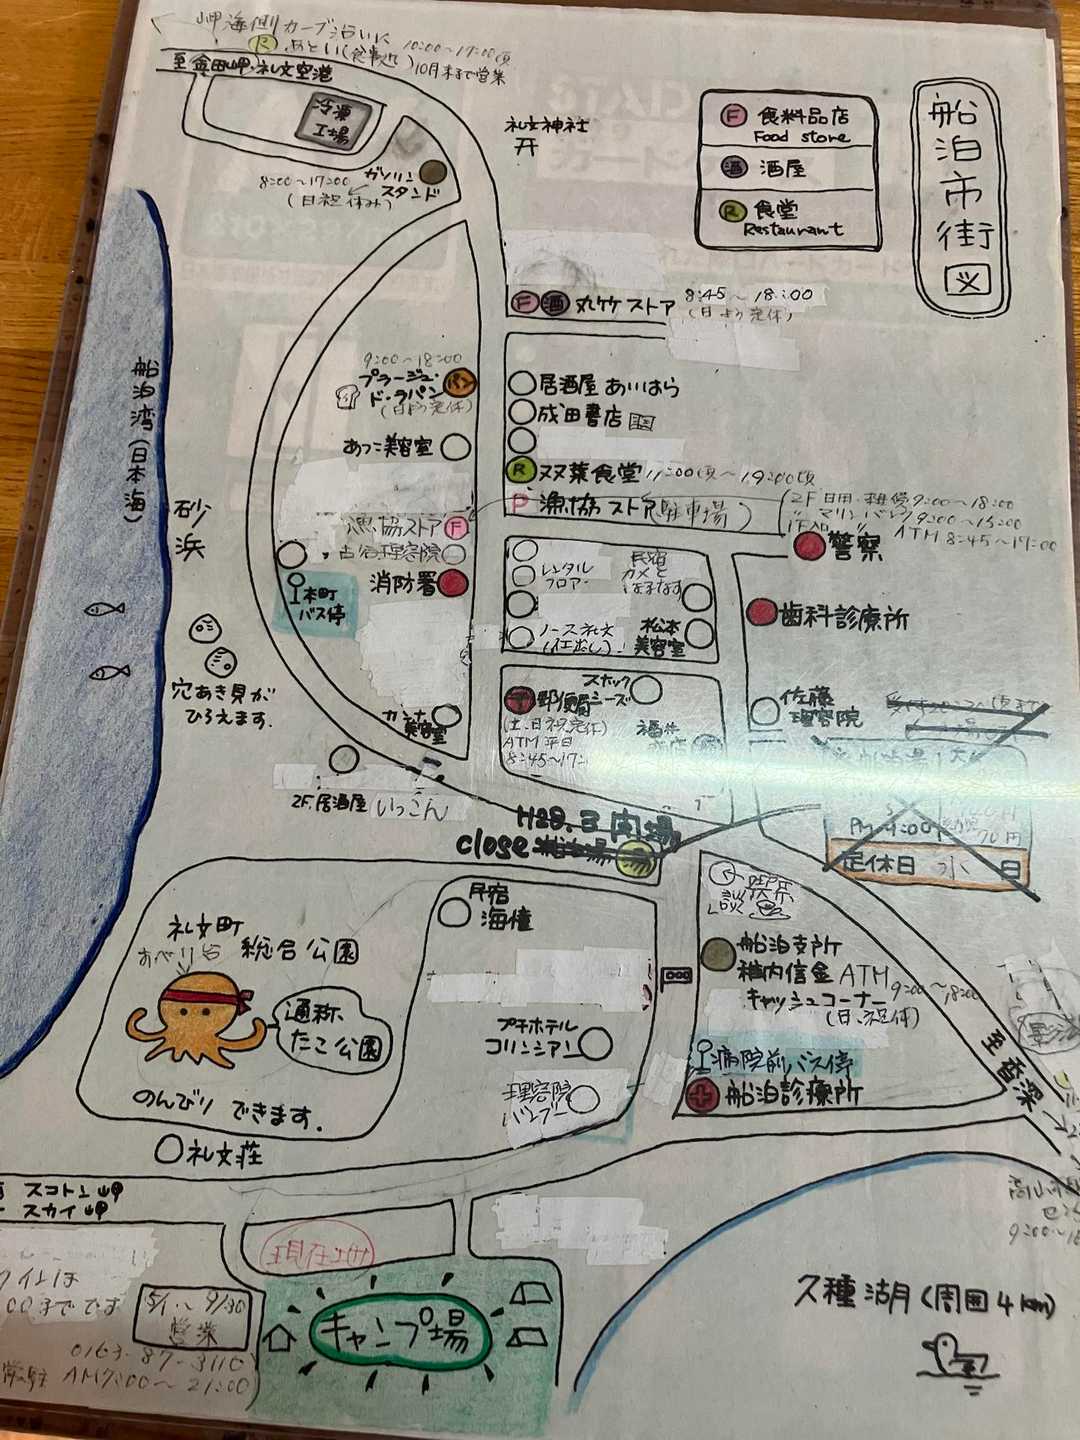 岬海側カーブ沿いに
R あとい(食事処) 10:00〜17:00頃
10月末まで営業
至 金田岬・礼文空港
冷凍
工場
礼文神社
8:00〜17:00
ガソリン
スタンド
(日祝休み)
F 食料品店
Food store
酒 酒屋
R 食堂
Restaurant
船泊市街図
F 酒 丸竹ストア 8:45〜18:00
(日よう定休)
9:00〜18:00
プラージュ・
ド・ラパン
パン
(日よう定休)
居酒屋 あいはら
成田書店
あつこ美容室
R 双葉食堂 11:00頃〜19:00頃
P 漁協ストア(駐車場)
2F 日用・雑貨 9:00〜18:00
〃 マリンバンク 9:00〜15:00
ATM 8:45〜17:00
漁協ストア F
古谷理容院
消防署
本町
バス停
警察
歯科診療所
船泊湾(日本海)
砂浜
穴あき貝が
ひろえます.
レンタル
フロアー
民宿
カメと
ノース礼文
(仕出し)
松本
美容室
カンナ
美容室
郵便局
(土、日祝定休)
ATM 平日
8:45〜17:
スナック
シーズ
福井
商店
佐藤
理容院
2F.居酒屋 いっこん
H28.3 閉場
close
PM 4:00
70円
定休日 水 日
民宿
海憧
礼文町
総合公園
通称、
たこ公園
のんびり できます.
船泊支所
稚内信金 ATM
キャッシュコーナー 9:00〜18:00
(日、祝休)
プチホテル
コリンシアン
理容院
バンブー
病院前バス停
船泊診療所
至香深
礼文荘
スコトン岬
スカイ岬
現在地
5/1〜9/30
営業
キャンプ場
0163-87-3110
AM7:00〜21:00)
久種湖(周囲4km)